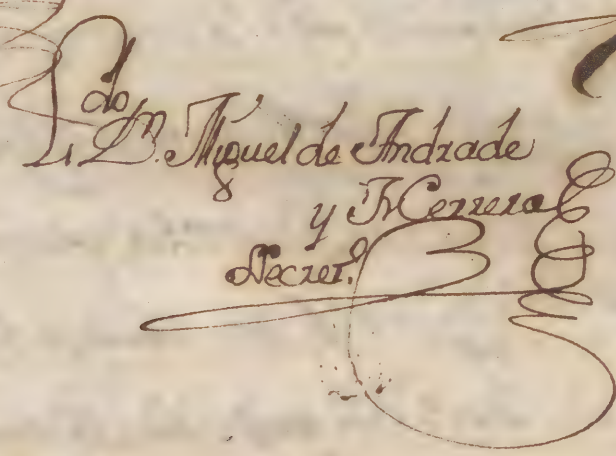 L.do D.n Miguel de Andrade
y Herrera
Secret.o